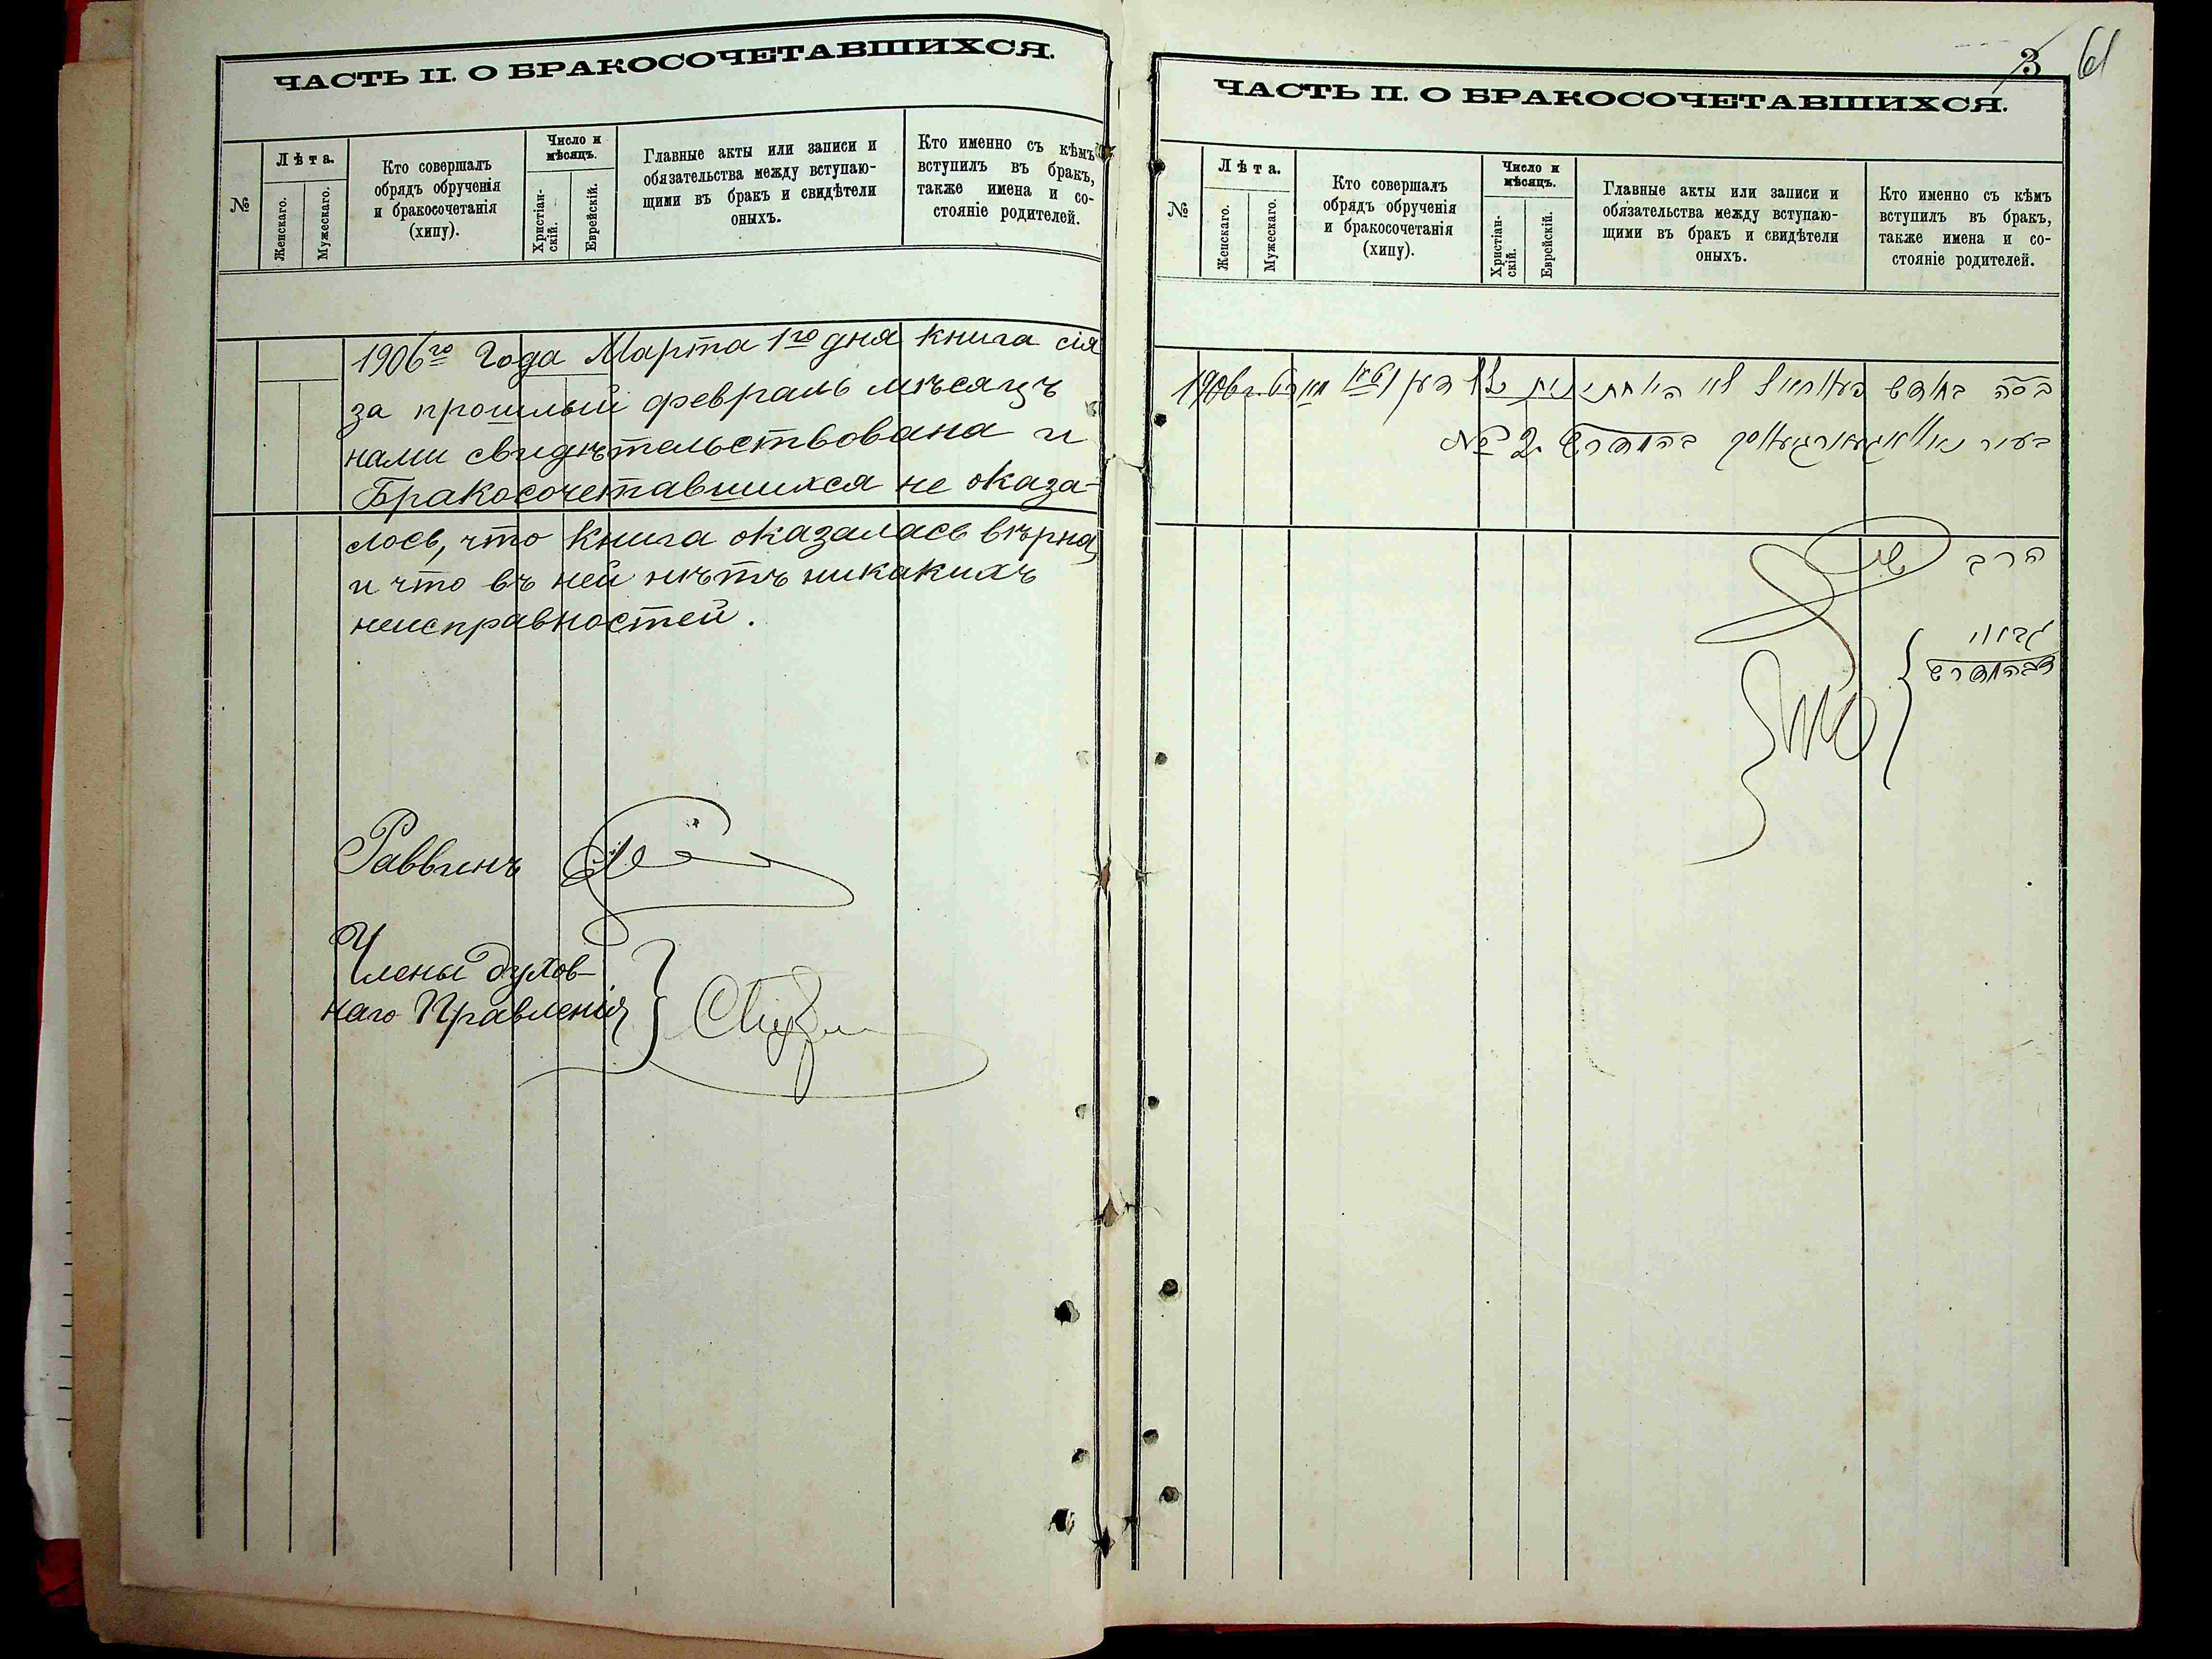 ЧАСТЬ II. О БРАКОСОЧЕТАВШИХСЯ.
№
Лѣта.
Женскаго.
Мужескаго.
Кто совершалъ
обрядъ обрученія
и бракосочетанія
(хипу).
Число и
мѣсяцъ.
Христіан-
скій.
Еврейскій.
Главные акты или записи и
обязательства между вступаю-
щими въ бракъ и свидѣтели
оныхъ.
Кто именно съ кѣмъ
вступилъ въ бракъ,
также имена и со-
стояніе родителей.
1906го Года Марта 1го дня книга сія
за прошлый февраль мѣсяцъ
нами свидѣтельствована и
Бракосочетавшихся не оказа-
лось, что книга оказалась вѣрна
и что въ ней нѣтъ никакихъ
неисправностей.
Раввинъ
Члены духов-
наго Правленія
3 61
ЧАСТЬ II. О БРАКОСОЧЕТАВШИХСЯ.
№
Лѣта.
Женскаго.
Мужескаго.
Кто совершалъ
обрядъ обрученія
и бракосочетанія
(хипу).
Число и
мѣсяцъ.
Христіан-
скій.
Еврейскій.
Главные акты или записи и
обязательства между вступаю-
щими въ бракъ и свидѣтели
оныхъ.
Кто именно съ кѣмъ
вступилъ въ бракъ,
также имена и со-
стояніе родителей.
בחדש לא 1906
בעיר № 2
הרב
גבאי